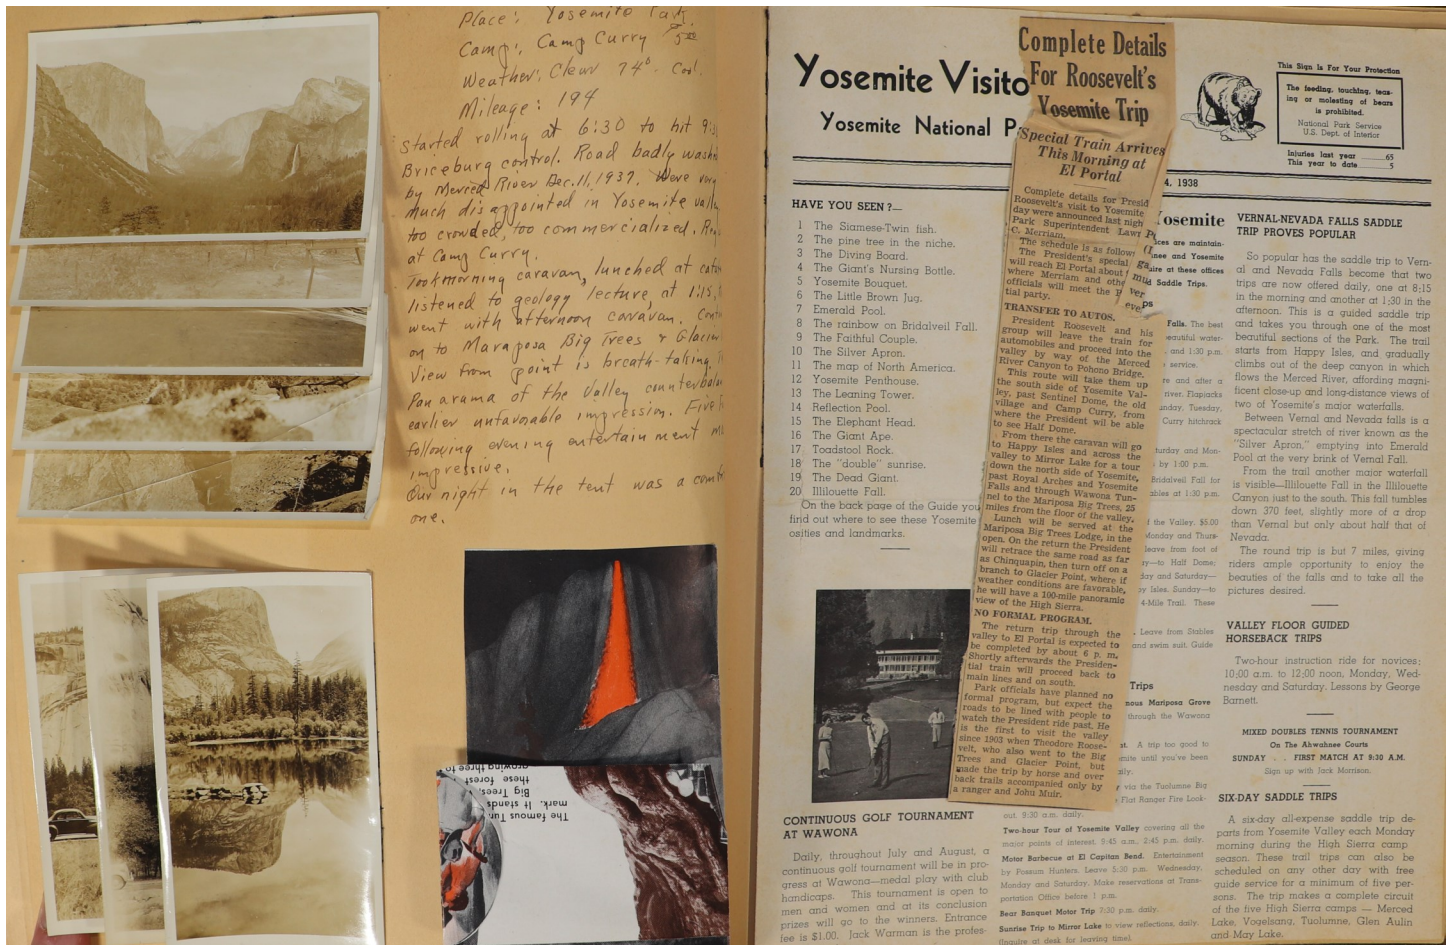 Place: Yosemite Park.
Camp: Camp Curry 5.00
Weather: Clear 74° - Cool.
Mileage: 194
Started rolling at 6:30 to hit
Briceburg control. Road badly
by Merced River Dec. 11, 1937. Were very
much disappointed in Yosemite
too crowded, too commercialized.
at Camp Curry.
Took morning caravan, lunched at
listened to geology lecture, at 1:15,
went with afternoon caravan.
on to Maraposa Big Trees & Glacier
View from point is breath-talking.
Panarama of the Valley
earlier unfavorable impression.
following evening entertainment
impressive.
Our night in the tent was a
one.
The famous
mark. It stands
Big Trees
these forest
growing three to
Yosemite Visito
Yosemite National P
4, 1938
This Sign Is For Your Protection
The feeding, touching, teas-
ing or molesting of bears
is prohibited.
National Park Service
U.S. Dept. of Interior
Injuries last year 65
This year to date 5
HAVE YOU SEEN?—
1 The Siamese-Twin fish.
2 The pine tree in the niche.
3 The Diving Board.
4 The Giant's Nursing Bottle.
5 Yosemite Bouquet.
6 The Little Brown Jug.
7 Emerald Pool.
8 The rainbow on Bridalveil Fall.
9 The Faithful Couple.
10 The Silver Apron.
11 The map of North America.
12 Yosemite Penthouse.
13 The Leaning Tower.
14 Reflection Pool.
15 The Elephant Head.
16 The Giant Ape.
17 Toadstool Rock.
18 The "double" sunrise.
19 The Dead Giant.
20 Illilouette Fall.
On the back page of the Guide you
find out where to see these Yosemite
osities and landmarks.
CONTINUOUS GOLF TOURNAMENT
AT WAWONA
Daily, throughout July and August, a
continuous golf tournament will be in pro-
gress at Wawona—medal play with club
handicaps. This tournament is open to
men and women and at its conclusion
prizes will go to the winners. Entrance
fee is $1.00. Jack Warman is the profes-
Complete Details
For Roosevelt's
Yosemite Trip
Special Train Arrives
This Morning at
El Portal
Complete details for Presid
Roosevelt's visit to Yosemite
day were announced last nigh
Park Superintendent Law
C. Merriam.
The schedule is as follow
The President's special
will reach El Portal about
where Merriam and oth
officials will meet the
tial party.
TRANSFER TO AUTOS.
President Roosevelt and his
group will leave the train for
automobiles and proceed into the
valley by way of the Merced
River Canyon to Pohono Bridge.
This route will take them up
the south side of Yosemite Val-
ley, past Sentinel Dome, the old
village and Camp Curry, from
where the President will be able
to see Half Dome.
From there the caravan will go
to Happy Isles and across the
valley to Mirror Lake for a tour
down the north side of Yosemite,
past Royal Arches and Yosemite
Falls and through Wawona Tun-
nel to the Mariposa Big Trees, 25
miles from the floor of the valley.
Lunch will be served at the
Mariposa Big Trees Lodge, in the
open. On the return the President
will retrace the same road as far
as Chinquapin, then turn off on a
branch to Glacier Point, where if
weather conditions are favorable,
he will have a 100-mile panoramic
view of the High Sierra.
NO FORMAL PROGRAM.
The return trip through the
valley to El Portal is expected to
be completed by about 6 p. m.
Shortly afterwards the Presiden-
tial train will proceed back to
main lines and on south.
Park officials have planned no
formal program, but expect the
roads to be lined with people to
watch the President ride past. He
is the first to visit the valley
since 1903 when Theodore Roose-
velt, who also went to the Big
Trees and Glacier Point, but
made the trip by horse and over
back trails accompanied only by
a ranger and John Muir.
Yosemite
ices are maintain-
nee and Yosemite
uire at these offices
d Saddle Trips.
Falls. The best
eautiful water-
and 1:30 p.m.
service.
re and after a
river. Flapjacks
unday, Tuesday,
Curry hitchrack
turday and Mon-
by 1:00 p.m.
Bridalveil Fall for
ables at 1:30 p.m.
f the Valley. $5.00
Monday and Thurs-
leave from foot of
ry—to Half Dome;
day and Saturday—
y Isles. Sunday—to
4-Mile Trail. These
Leave from Stables
and swim suit. Guide
Trips
nous Mariposa Grove
through the Wawona
st. A trip too good to
mite until you've been
aily.
via the Tuolumne Big
Flat Ranger Fire Look-
out. 9:30 a.m. daily.
Two-hour Tour of Yosemite Valley covering all the
major points of interest. 9:45 a.m., 2:45 p.m. daily.
Motor Barbecue at El Capitan Bend. Entertainment
by Possum Hunters. Leave 5:30 p.m. Wednesday,
Monday and Saturday. Make reservations at Trans-
portation Office before 1 p.m.
Bear Banquet Motor Trip 7:30 p.m. daily.
Sunrise Trip to Mirror Lake to view reflections, daily.
(Inquire at desk for leaving time)
VERNAL-NEVADA FALLS SADDLE
TRIP PROVES POPULAR
So popular has the saddle trip to Vern-
al and Nevada Falls become that two
trips are now offered daily, one at 8:15
in the morning and another at 1:30 in the
afternoon. This is a guided saddle trip
and takes you through one of the most
beautiful sections of the Park. The trail
starts from Happy Isles, and gradually
climbs out of the deep canyon in which
flows the Merced River, affording magni-
ficent close-up and long-distance views of
two of Yosemite's major waterfalls.
Between Vernal and Nevada falls is a
spectacular stretch of river known as the
"Silver Apron," emptying into Emerald
Pool at the very brink of Vernal Fall.
From the trail another major waterfall
is visible—Illilouette Fall in the Illilouette
Canyon just to the south. This fall tumbles
down 370 feet, slightly more of a drop
than Vernal but only about half that of
Nevada.
The round trip is but 7 miles, giving
riders ample opportunity to enjoy the
beauties of the falls and to take all the
pictures desired.
VALLEY FLOOR GUIDED
HORSEBACK TRIPS
Two-hour instruction ride for novices;
10:00 a.m. to 12:00 noon, Monday, Wed-
nesday and Saturday. Lessons by George
Barnett.
MIXED DOUBLES TENNIS TOURNAMENT
On The Ahwahnee Courts
SUNDAY . . FIRST MATCH AT 9:30 A.M.
Sign up with Jack Morrison.
SIX-DAY SADDLE TRIPS
A six-day all-expense saddle trip de-
parts from Yosemite Valley each Monday
morning during the High Sierra camp
season. These trail trips can also be
scheduled on any other day with free
guide service for a minimum of five per-
sons. The trip makes a complete circuit
of the five High Sierra camps — Merced
Lake, Vogelsang, Tuolumne, Glen Aulin
and May Lake.